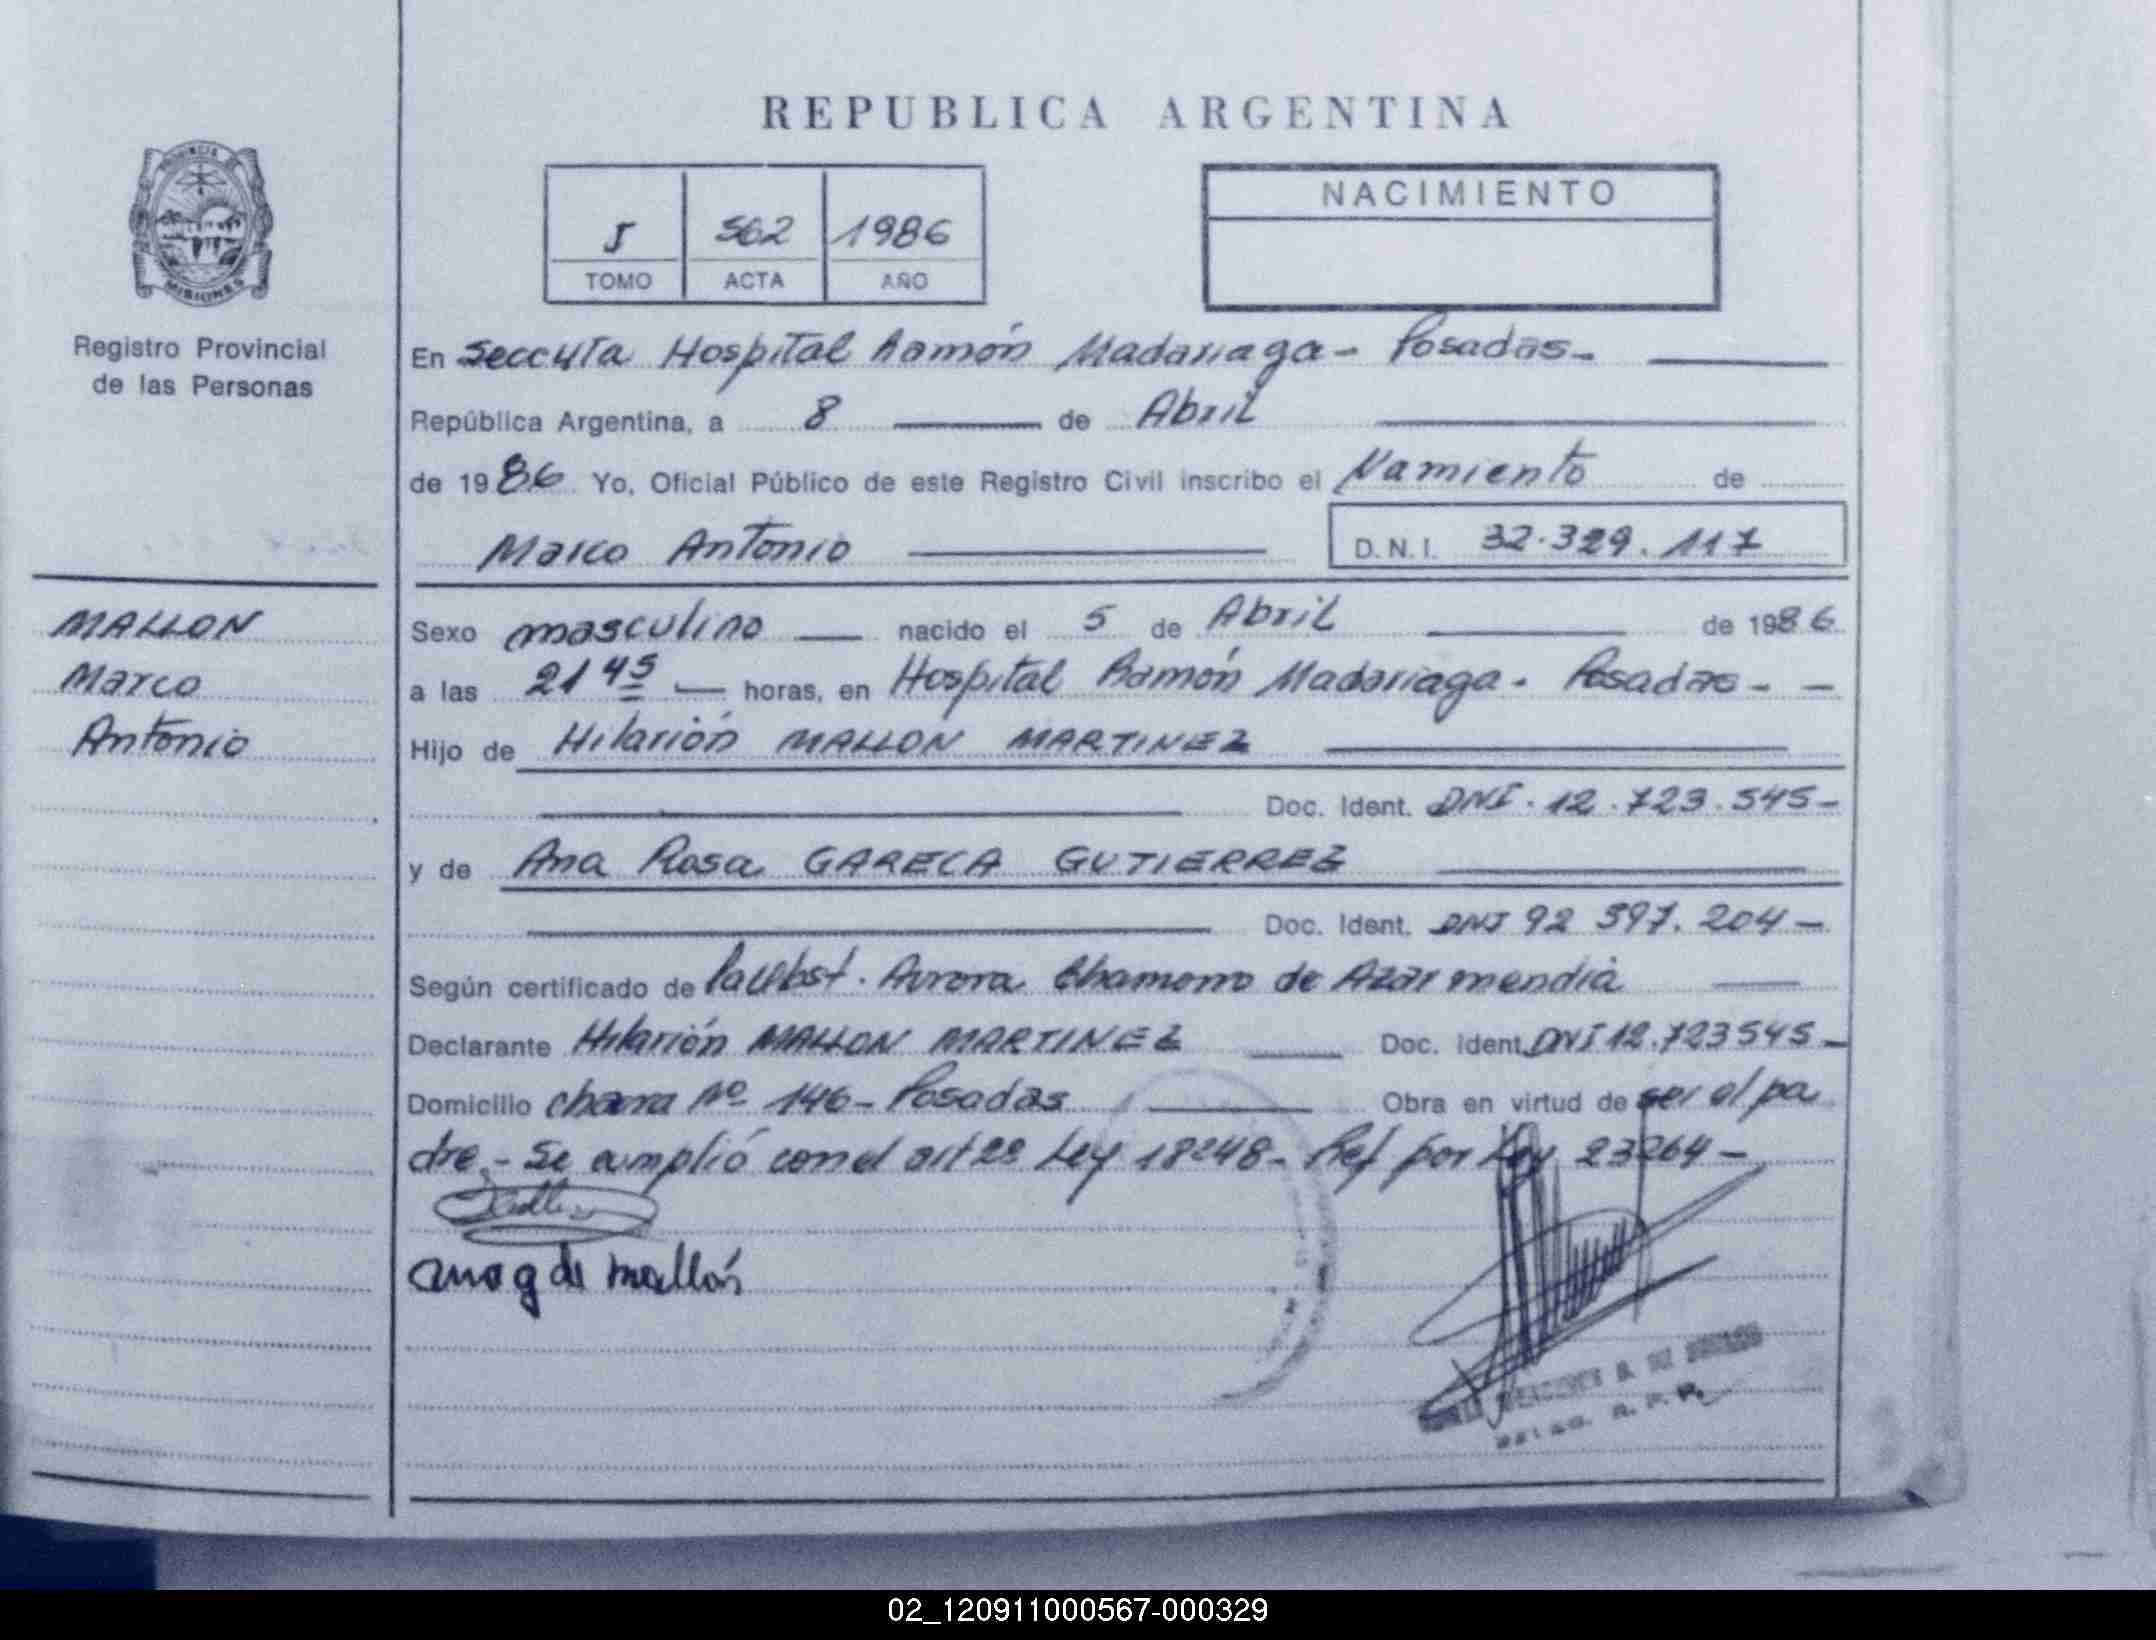 REPUBLICA ARGENTINA
PROVINCIA DE
MISIONES
Registro Provincial
de las Personas
5 562 1986
TOMO ACTA AÑO
NACIMIENTO
En Seccuta Hospital Ramón Madariaga - Posadas -
República Argentina, a 8 de Abril
de 1986 Yo, Oficial Público de este Registro Civil inscribo el Namiento de
Marco Antonio
D.N.I. 32.329.117
MALLON
Marco
Antonio
Sexo masculino nacido el 5 de Abril de 1986
a las 21 45 horas, en Hospital Ramón Madariaga - Posadas -
Hijo de Hilarión MALLON MARTINEZ
Doc. Ident. DNI. 12.723.545-
y de Ana Rosa GARECA GUTIERREZ
Doc. Ident. DNI 92 597.204-
Según certificado de Aurora Chamorro de Azarmendia
Declarante Hilarión MALLON MARTINEZ Doc. Ident. DNI 12.723545-
Domicilio chacra Nº 146- Posadas Obra en virtud de ser el pa
dre.- Se cumplió con el art 2º Ley 18248- Ref por Ley 23264-
Ana g de Mallón
02_120911000567-000329